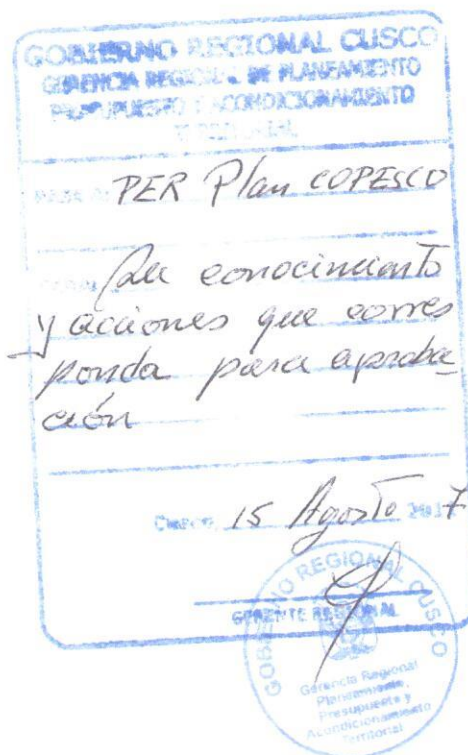 GOBIERNO REGIONAL CUSCO
GERENCIA REGIONAL DE PLANEAMIENTO
PRESUPUESTO Y ACONDICIONAMIENTO
TERRITORIAL
PASE A: PER Plan COPESCO
Su conocimiento
y acciones que corres
ponda para aproba-
ción
Cusco, 15 Agosto 2017
GERENTE REGIONAL
GOBIERNO REGIONAL CUSCO
Gerencia Regional
Planeamiento,
Presupuesto y
Acondicionamiento
Territorial